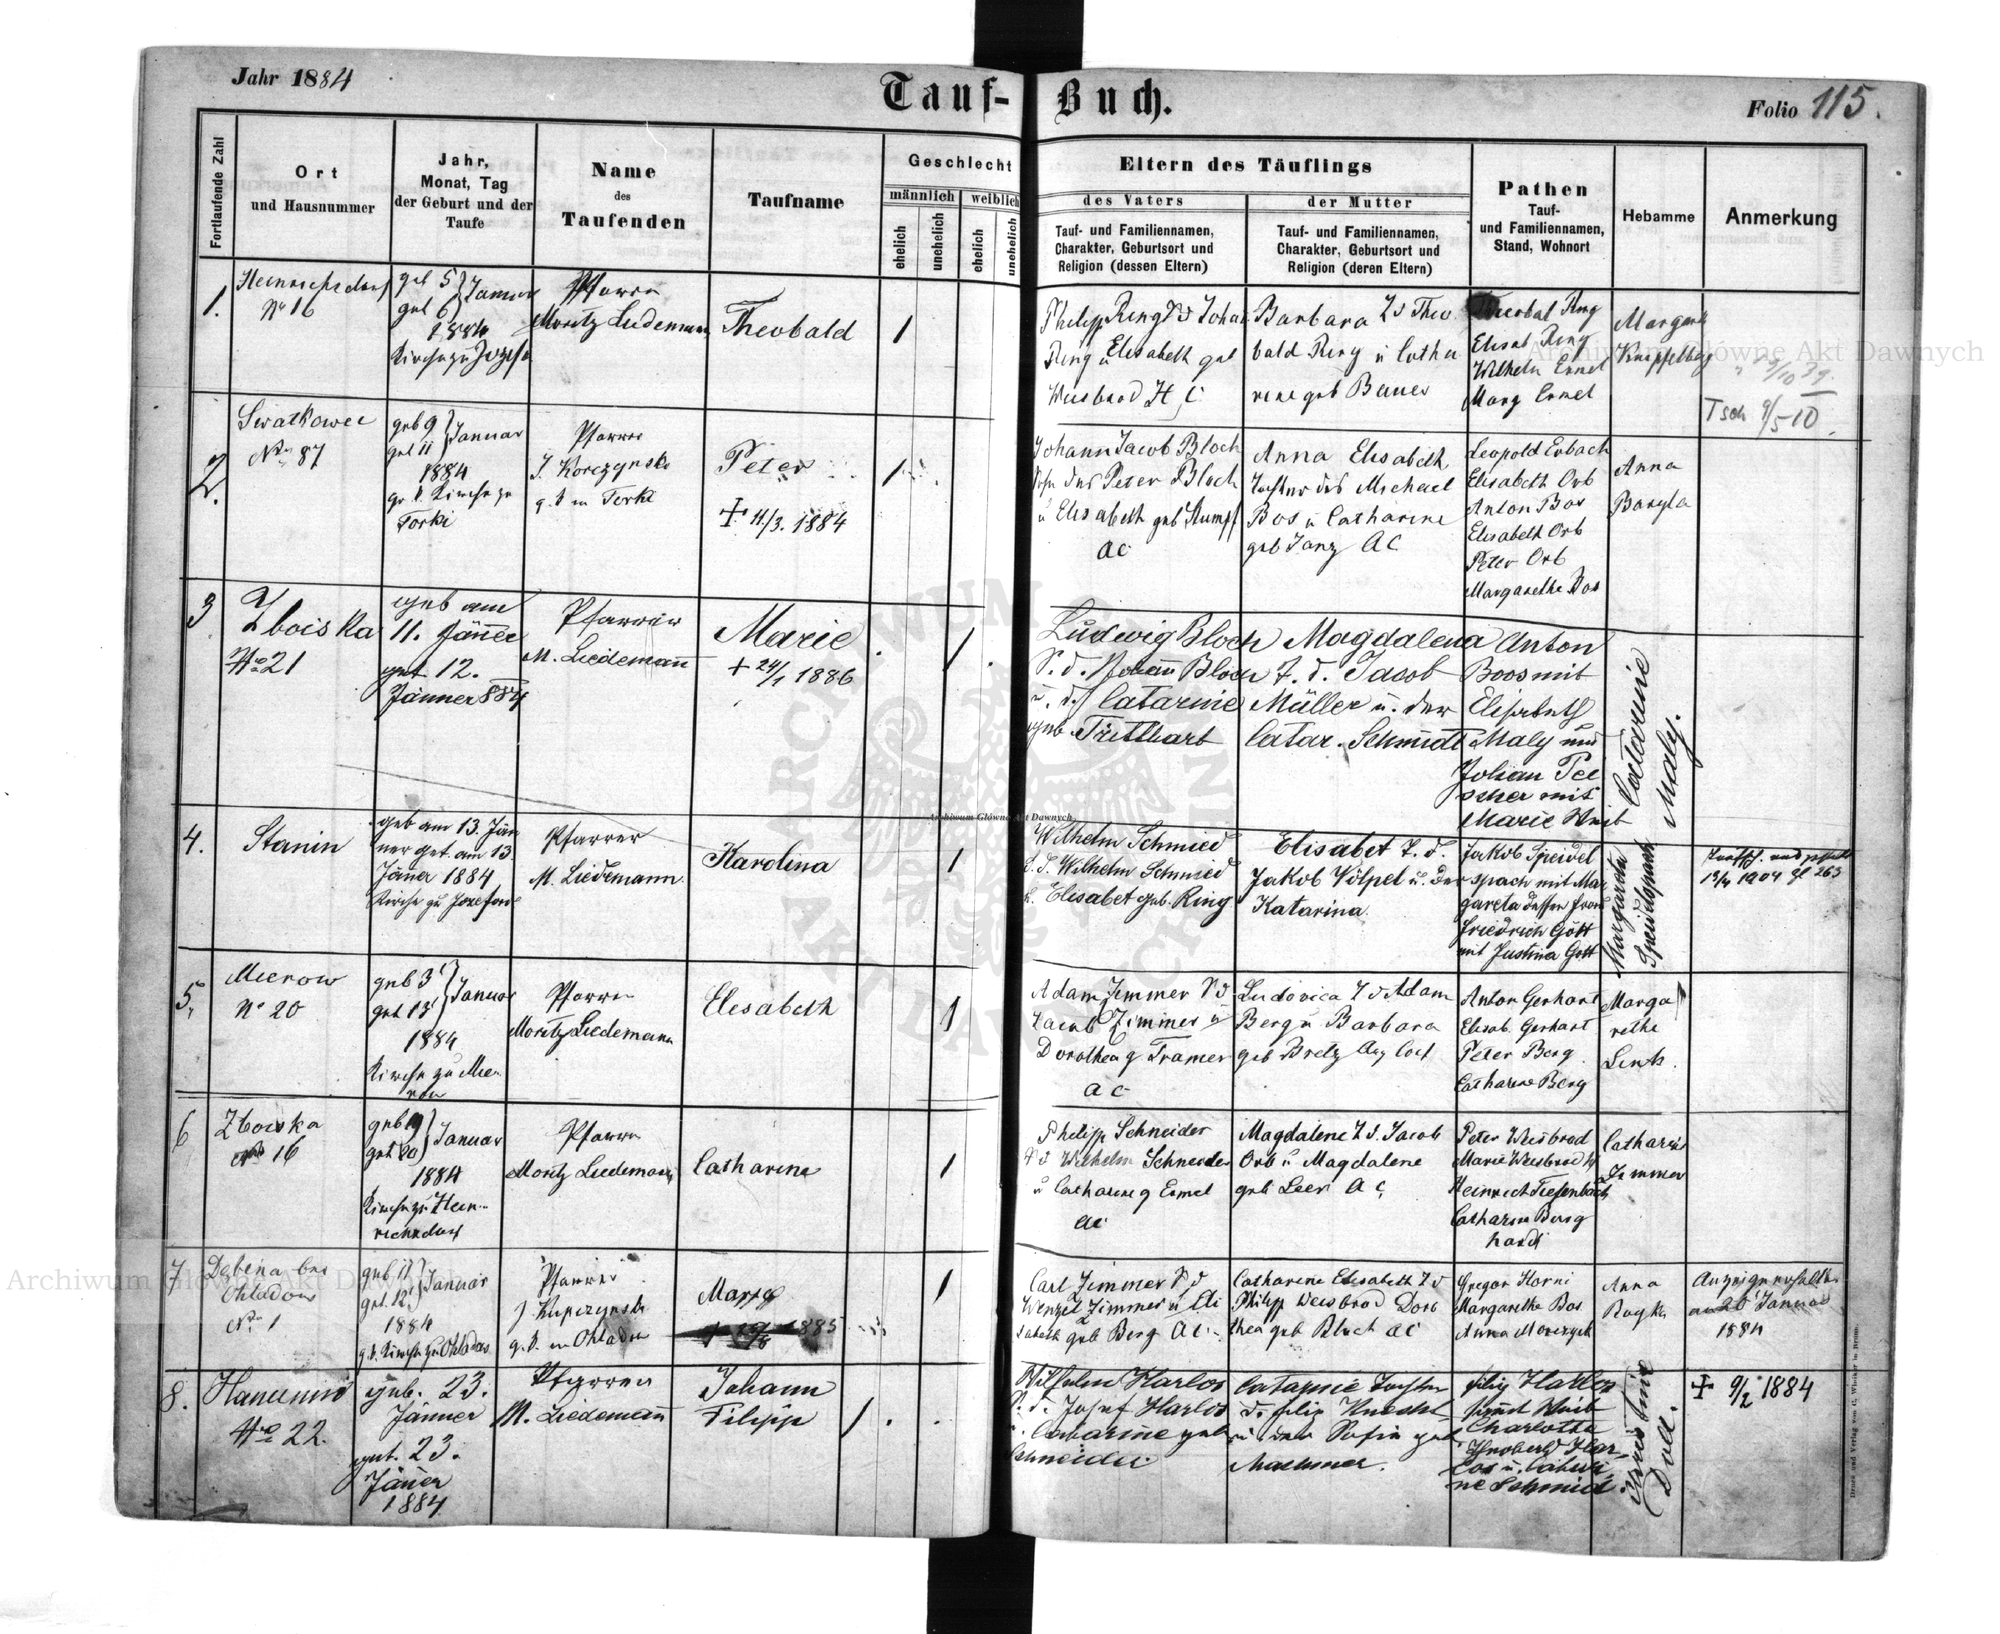 Jahr 1884
Tauf-Buch.
Folio 115.
Fortlaufende Zahl
Ort
und Hausnummer
Jahr,
Monat, Tag
der Geburt und der
Taufe
Name
des
Taufenden
Taufname
Geschlecht
männlich
weiblich
ehelich
unehelich
ehelich
unehelich
Eltern des Täuflings
des Vaters
Tauf- und Familiennamen,
Charakter, Geburtsort und
Religion (dessen Eltern)
der Mutter
Tauf- und Familiennamen,
Charakter, Geburtsort und
Religion (deren Eltern)
Pathen
Tauf-
und Familiennamen,
Stand, Wohnort
Hebamme
Anmerkung
1.
Heinrichsdorf
No 16
geb 5 Januar
get 6
1884
Kirche zu
Pfarrer
Moritz Liedemann
Theobald
1
Philipp Ring S d Johan
Ring u Elisabeth geb
Weisbrod H C
Barbara T d Theo
bald Ring u Catha
rine geb Bauer
Theobal Ring
Elisab Ring
Wilhelm Ermel
Marg Ermel
Margareth
2.
Swatkowce
No 87
geb 9 Januar
get 11
1884
gr k. Kirche zu
Torki
Pfarrer
J. Korczynski
g. k in Torki
Peter
+ 11/3. 1884
1
Johann Jacob Bloch
Sohn des Peter Bloch
u Elisabeth geb Stumpf
AC
Anna Elisabeth
Tochter des Michael
Bos u Catharine
geb Janz AC
Leopold Erbach
Elisabeth Orb
Anton Bos
Elisabeth Orb
Peter Orb
Margarethe Bos
Anna
Basyla
3
Zboiska
No 21
geb am
11. Jänner
get 12.
Jänner 884
Pfarrer
M. Liedemann
Marie
+ 24/1 1886
1
Ludwig Bloch
S. d. Johann Bloch
u. d. Catarine
geb. Tritthart
Magdalena
T. d. Jacob
Müller u. der
Catar. Schmidt
Anton
Boos mit
Elisabeth
Maly und
Johan
mit
Marie Weib
Catarine
Maly.
4.
Stanin
geb am 13. Jän
ner get. am 13.
Jänner 1884
Kirche zu Josefow
Pfarrer
M. Liedemann.
Karolina
1
Wilhelm Schmied
S. d. Wilhelm Schmied
u. Elisabet geb. Ring
Elisabet T. d.
Jakob Völpel u. der
Katarina.
Jakob Speidel
spach mit Mar
gareta dessen Frau
Friedrich Gött
mit Justina Gött
Margareta
Speidelspach
5.
Mierow
No 20
geb 3 Januar
get 13
1884
Kirche zu Mie-
row
Pfarrer
Moritz Liedemann
Elisabeth
1
Adam Zimmer S d
Jacob Zimmer u
Dorothea g Tramer
AC
Ludovica T d Adam
Berg u Barbara
geb Bretz
Anton Gerhart
Elisab. Gerhart
Peter Berg
Catharine Berg
Marga
rethe
Lenk.
6
Zboiska
No 16
geb 19 Januar
get 20
1884
Kirche zu Hein-
richsdorf
Pfarrer
Moritz Liedemann
Catharine
1
Philipp Schneider
S d Wilhelm Schneider
u Catharine g Ermel
AC
Magdalene T d. Jacob
Orb u Magdalene
geb Leer AC
Peter Weisbrod
Marie Weisbrod
Heinrich Tiefenbach
Catharine Berg
hardt
Catharine
Zimmer
7
Dabina bei
Ohladow
No 1
geb 11 Januar
get. 12
1884
g. k. Kirche zu Ohladow
Pfarrer
g. k. in Ohladow
1885
1
Carl Zimmer S d
Wenzel Zimmer u Eli
sabeth geb Berg AC
Catharine Elisabeth T d
Philipp Weisbrod Doro
thea geb Bloch AC
Gregor Horni
Margarethe Bos
Anna
Anna
Anzeige erhalten
am 20 Januar
1884
8.
Hanunin
No 22.
geb. 23.
Jänner
get. 23.
Jänner
1884
Pfarrer
M. Liedemann
Johann
Filipp
1
Wilhelm Karlos
S. d. Josef Karlos
u. Catharine geb
Schneider.
Catarine Tochter
d. Filip Knecht
u. der Sofia geb
Machmer.
Filip Karlos
sammt Weib
Charlotte
u. Cathari-
ne Schmidt
Christine
Doll.
+ 9/2 1884
Archiwum Główne Akt Dawnych
Archiwum Główne Akt Dawnych
Archiwum Główne Akt Dawnych
ARCHIWUM GŁÓWNE AKT DAWNYCH